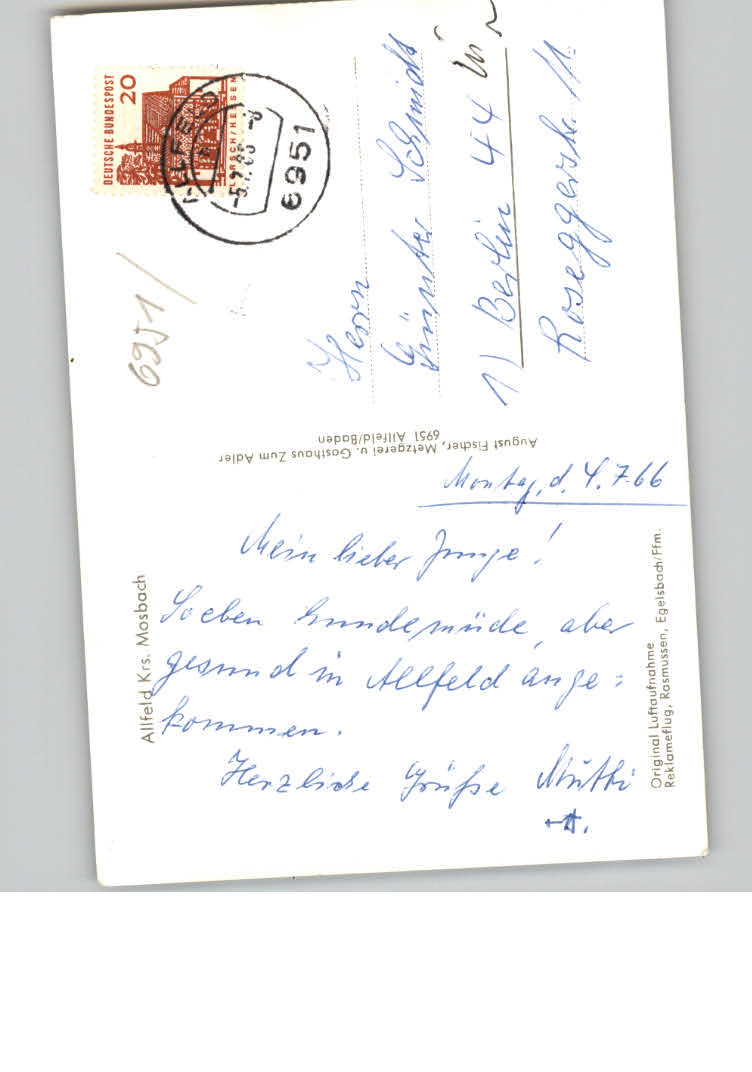 DEUTSCHE BUNDESPOST
20
LORSCH/HESSEN
ALLFELD
-5.7.66 -8
6951
6951/
Herrn
Günter Schmidt
1) Berlin 44
Roseggerstr. 11.
August Fischer, Metzgerei u. Gasthaus Zum Adler
6951 Allfeld/Baden
Montag, d. 4.7.66
Mein lieber Junge!
Soeben hundemüde, aber
gesund in Allfeld ange=
kommen.
Herzliche Grüße Mutti
Allfeld Krs. Mosbach
Original Luftaufnahme
Reklameflug, Rasmussen, Egelsbach/Ffm.